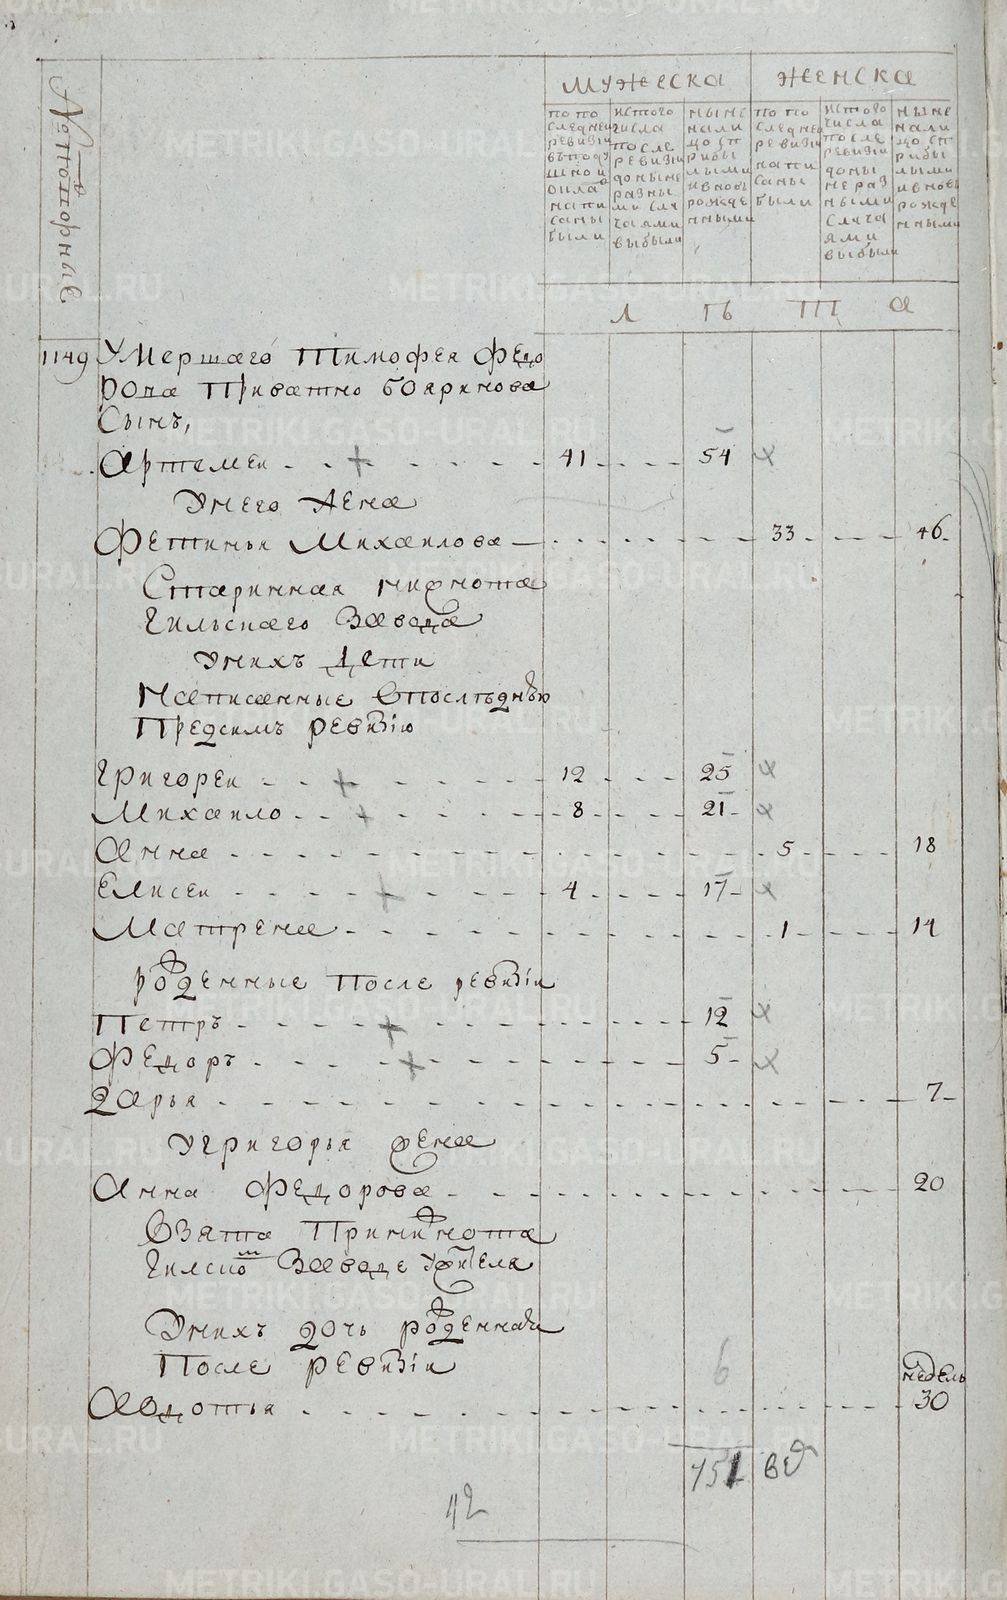 METRIKI.GASO-URAL.RU
№подворные
МУЖЕСКА ЖЕНСКА
по последней ревизіи въ подушной окладъ написаны были
истого числа после ревизіи доныне разными случаями выбыли
ныне налицо сприбылыми ивновь рожденными
по последней ревизіи написаны были
истого числа после ревизіи доныне разными случаями выбыли
ныне налицо сприбылыми ивновь рожденными
Л ѣ т а
1149 Умершаго Тимофея Федо
рова Приватно бояринова
Сынъ,
Артемеи 41 54
Унего жена
Фетинья Михаилова 33 46
Старинная
гильскаго Завода
Унихъ дети
Написанные впоследнюю
Предсимъ ревизію
Григореи 12 25
Михаило 8 21
Анна 5 18
Елисеи 4 17
Матрена 1 14
рожденные после ревизіи
Петръ 12
Федоръ 5
Дарья 7
Угригорья жена
Анна Федорова 20
Взята
Заводе Ужителя
Унихъ дочь рожденная
После ревизіи
недель
Авдотья 30
6
42